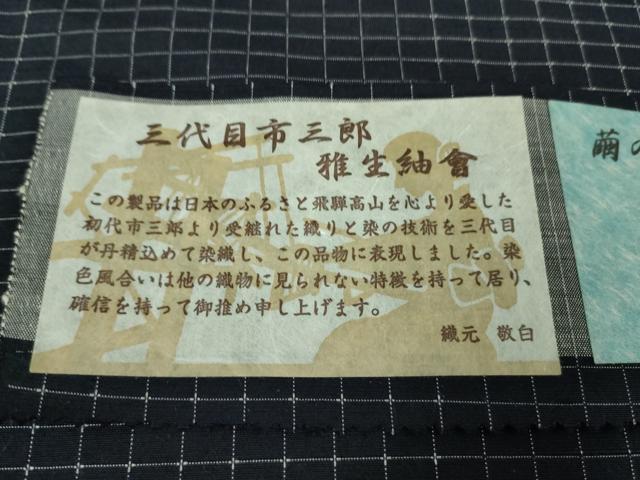 三代目市三郎
雅生紬會
この製品は日本のふるさと飛騨高山を心より愛した
初代市三郎より受継れた織りと染の技術を三代目
が丹精込めて染織し、この品物に表現しました。染
色風合いは他の織物に見られない特徴を持って居り、
確信を持って御推め申し上げます。
織元 敬白
繭の